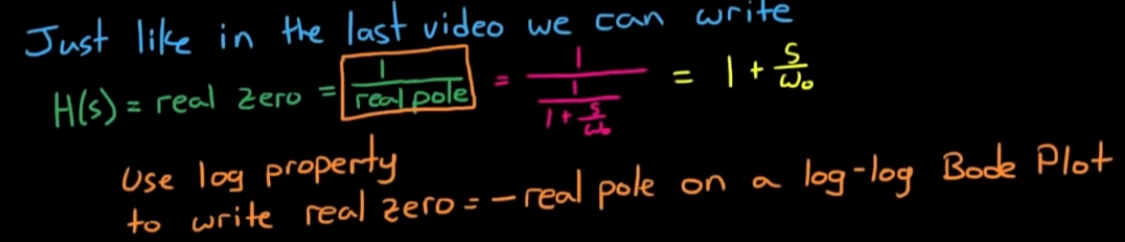 Just like in the last video we can write
H(s) = real zero = 1/real pole = 1/(1/(1+s/ω₀)) = 1 + s/ω₀
Use log property
to write real zero = - real pole on a log-log Bode Plot